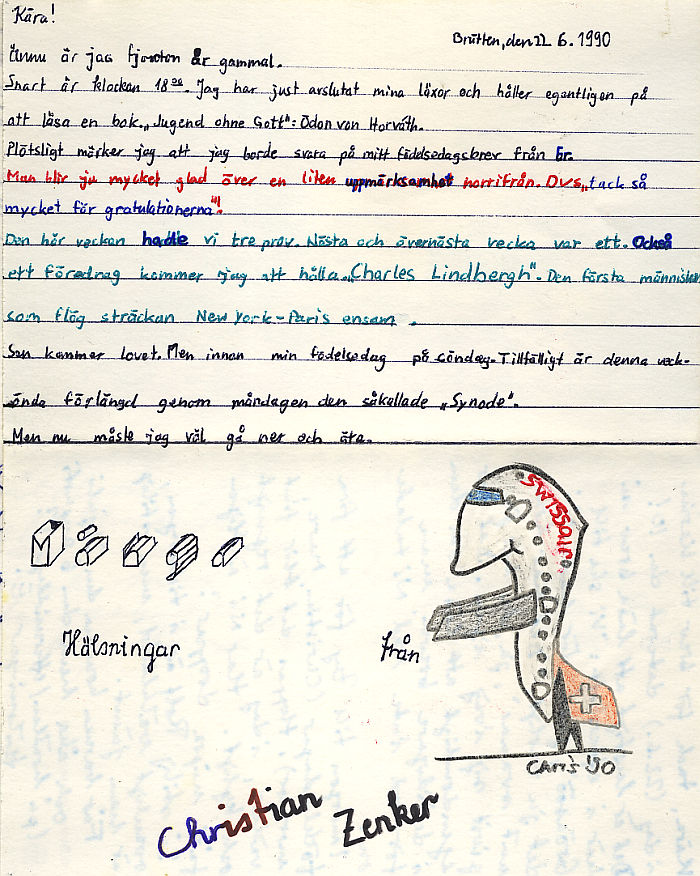 Kära!
Brütten, den 22 6. 1990
Ännu är jag fjorton år gammal.
Snart är klockan 18 00. Jag har just avslutat mina läxor och håller egentligen på
att läsa en bok. „Jugend ohne Gott": Ödon von Horvath.
Plötsligt märker jag att jag borde svara på mitt födelsedagsbrev från Er.
Man blir ju mycket glad över en liten uppmärksamhet norrifrån. Dvs „tack så
mycket för gratulationerna"!
Den här veckan hadde vi tre prov. Nästa och övernästa vecka var ett. Också
ett föredrag kommer jag att hålla. „Charles Lindbergh". Den första människan
som flög sträckan New York-Paris ensam.
Sen kommer lovet. Men innan min födelsedag på söndag. Tillfälligt är denna veck-
önda förlängd genom måndagen den såkallade „Synode".
Men nu måste jag väl gå ner och äta.
SWISSair
Många
Hälsningar från
Chris '90
Christian Zenker